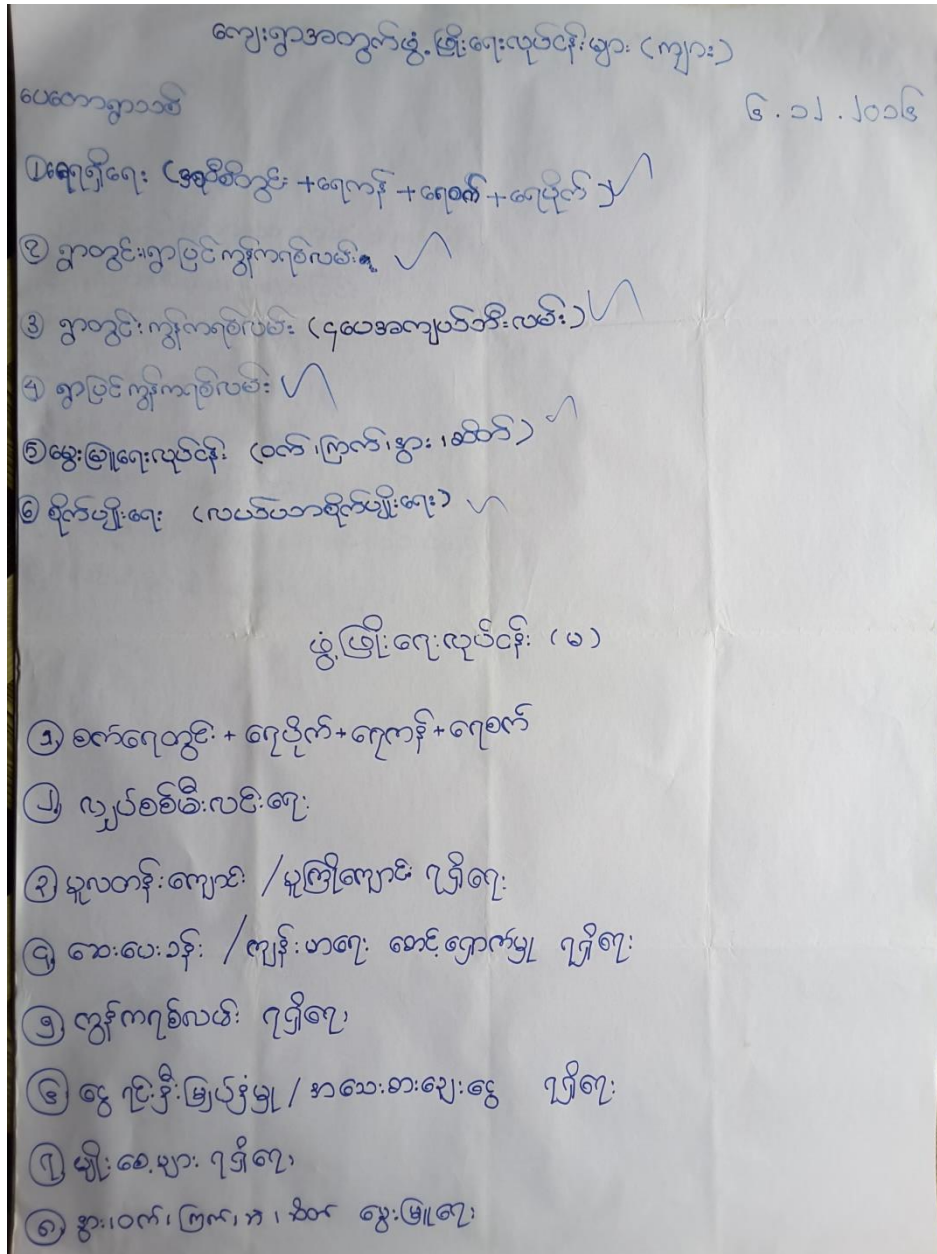 ကျေးရွာအတွက်ဖွံ့ဖြိုးရေးလုပ်ငန်းများ (ကျား)
ပေတောရွာသစ် ၆.၁၂.၂၀၁၆
① ရေရရှိရေး (အဝီစိတွင်း + ရေကန် + ရေစက် + ရေပိုက်)
② ရွာတွင်း၊ရွာပြင်ကွန်ကရစ်လမ်း
③ ရွာတွင်းကွန်ကရစ်လမ်း (၄ပေအကျယ်ဘီးလမ်း)
④ ရွာပြင်ကွန်ကရစ်လမ်း
⑤ မွေးမြူရေးလုပ်ငန်း (ဝက်၊ကြက်၊နွား၊ဆိတ်)
⑥ စိုက်ပျိုးရေး (လယ်ယာစိုက်ပျိုးရေး)
ဖွံ့ဖြိုးရေးလုပ်ငန်း (မ)
၁) စက်ရေတွင်း + ရေပိုက် + ရေကန် + ရေစက်
၂) လျှပ်စစ်မီးလင်းရေး
၃) မူလတန်းကျောင်း / မူကြိုကျောင်း ရရှိရေး
၄) ဆေးပေးခန်း / ကျန်းမာရေး စောင့်ရှောက်မှု ရရှိရေး
၅) ကွန်ကရစ်လမ်း ရရှိရေး
၆) ငွေ ရင်းနှီးမြှုပ်နှံမှု / အသေးစားချေးငွေ ရရှိရေး
၇) မျိုးစေ့များ ရရှိရေး
၈) နွား၊ဝက်၊ကြက်၊ဘဲ၊ဆိတ် မွေးမြူရေး